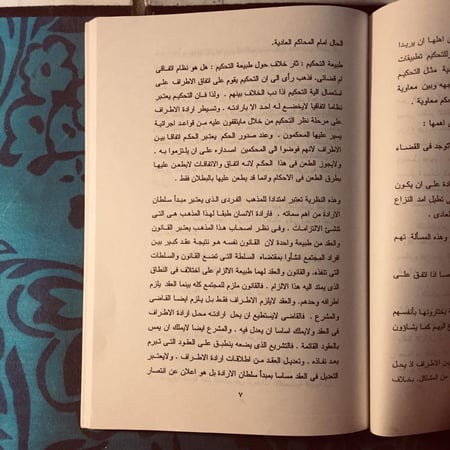 الحال امام المحاكم العادية.
طبيعة التحكيم : ثار خلاف حول طبيعة التحكيم : هل هو نظام اتفاقى
ام قضائى. فذهب رأى الى ان التحكيم يقوم على اتفاق الاطراف على
استعمال الية التحكيم اذا دب الخلاف بينهم . ولذا فان التحكيم يعتبر
نظاما اتفاقيا لايخضع له احد الا بارادته. وتسيطر ارادة الاطراف
على مرحلة نظر التحكيم من خلال مايتفقون عليه من قواعد اجرائية
يسير عليها المحكمون. وعند صدور الحكم يعتبر الحكم اتفاقا بين
الاطراف لانهم فوضوا الى المحكمين اصداره على ان يلتزموا به .
ولايجوز الطعن فى هذا الحكم لانه اتفاق والاتفاقات لايطعن عليها
بطرق الطعن فى الاحكام وانما قد يطعن عليها بالبطلان فقط .
وهذه النظرية تعتبر امتدادا للمذهب الفردى الذى يعتبر مبدأ سلطان
الارادة من اهم سماته . فارادة الانسان طبقا لهذا المذهب هى التى
تنشئ الالتزامات . وفى نظر اصحاب هذا المذهب يعتبر القانون
والعقد من طبيعة واحدة لان القانون نفسه هو نتيجة عقد كبير بين
افراد المجتمع انشأوا بمقتضاه السلطة التى تضع القانون والسلطات
التى تنفذه. والقانون والعقد لهما طبيعة الالزام على اختلاف فى النطاق
الذى يمتد اليه هذا الالزام . فالقانون ملزم للمجتمع كله بينما العقد يلزم
اطرافه وحدهم. والعقد لايلزم الاطراف فقط بل يلزم ايضا القاضى
والمشرع . فالقاضى لايستطيع ان يحل ارادته محل ارادة الاطراف
فى العقد ولايملك اساسا ان يعدل فيه . والمشرع ايضا لايملك ان يمس
بالعقود القائمة . فالتشريع الذى يضعه ينطبق على العقود التى تبرم
بعد نفاذه . وتعديل العقد من اطلاقات ارادة الاطراف . ولايعتبر
التعديل فى العقد مساسا بمبدأ سلطان الارادة بل هو اعلان عن انتصار
٧
اهلها ان يريدا
للتحكيم تطبيقات
ية مثل التحكيم
يهه وبين معاوية
حكم معاوية .
اهمها :
توجد فى القضاء
رادة على ان يكون
تطيل امد النزاع
عادى .
وهذه المسألة تهم
صا اذا اتفق على
يختارونها بأنفسهم
اليهم كما يشاؤون
ين الاطراف اذ يحل
من المشاكل. بخلاف